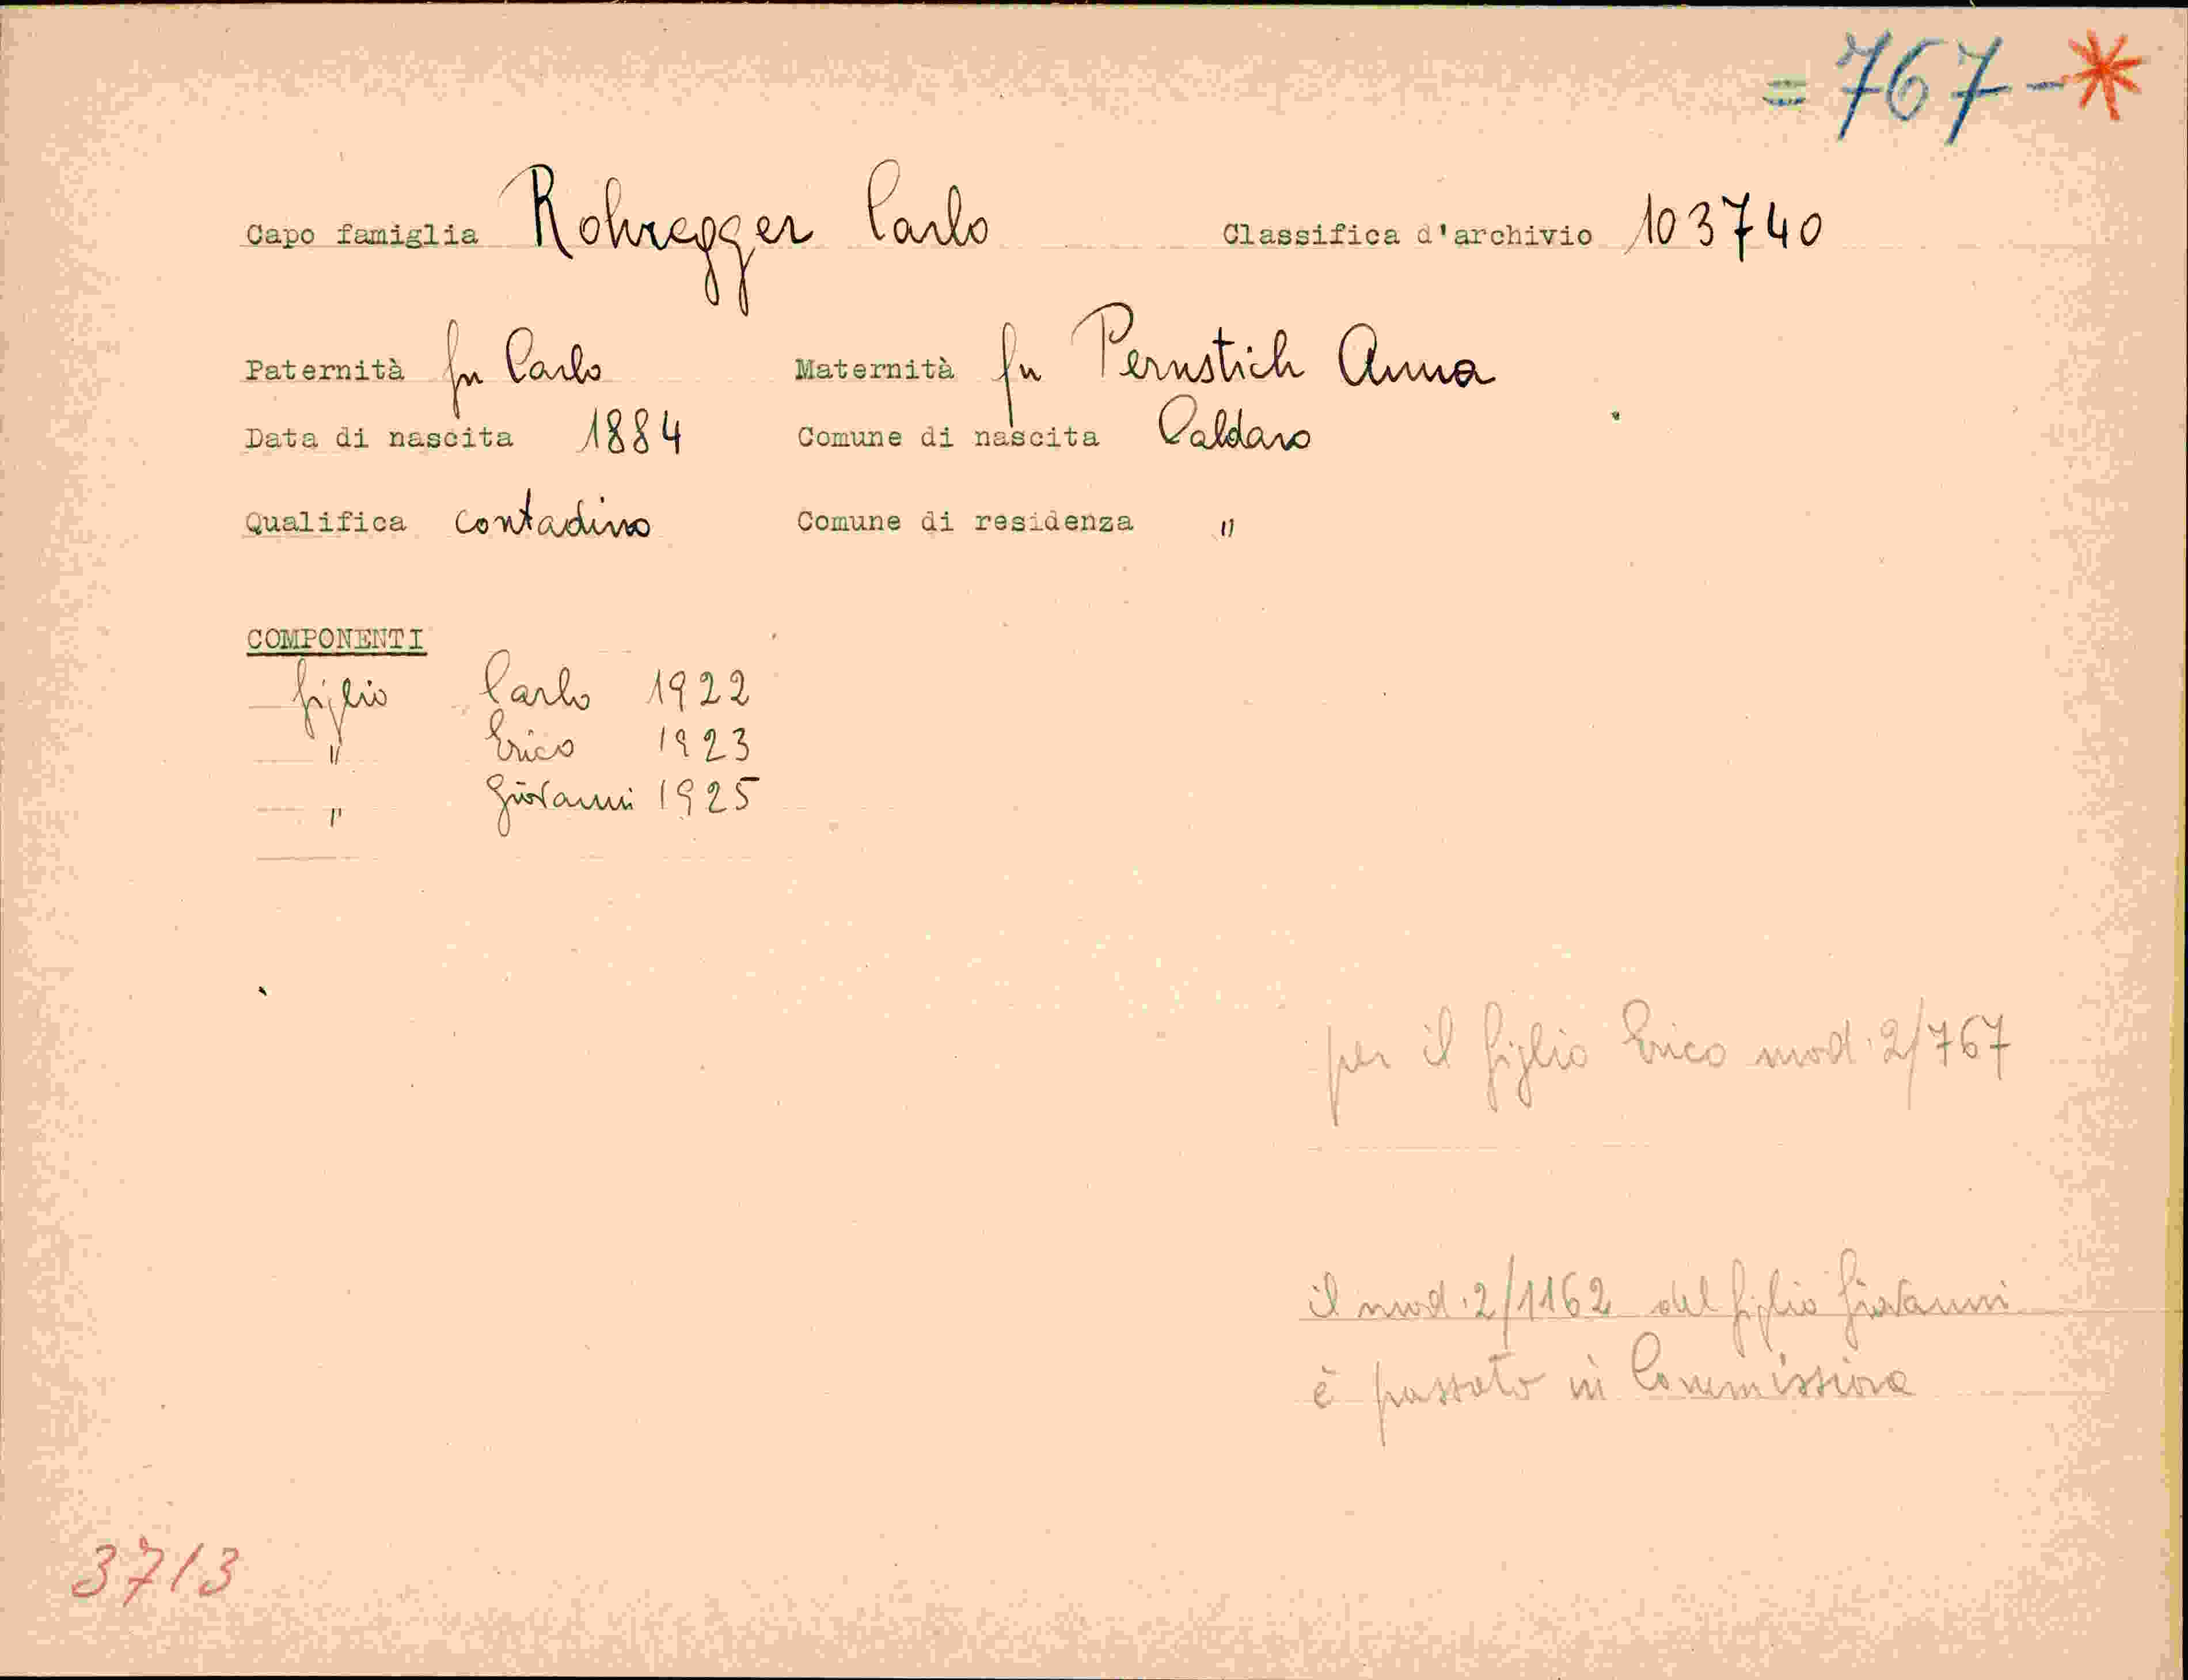 = 767 - *
Capo famiglia Rohregger Carlo Classifica d'archivio 103740
Paternità fu Carlo Maternità fu Pernstich Anna
Data di nascita 1884 Comune di nascita Caldaro
Qualifica contadino Comune di residenza "
COMPONENTI
figlio Carlo 1922
" Erico 1923
" Giovanni 1925
per il figlio Erico mod. 2/767
il mod. 2/1162 del figlio Giovanni
è passato in Commissione
3713